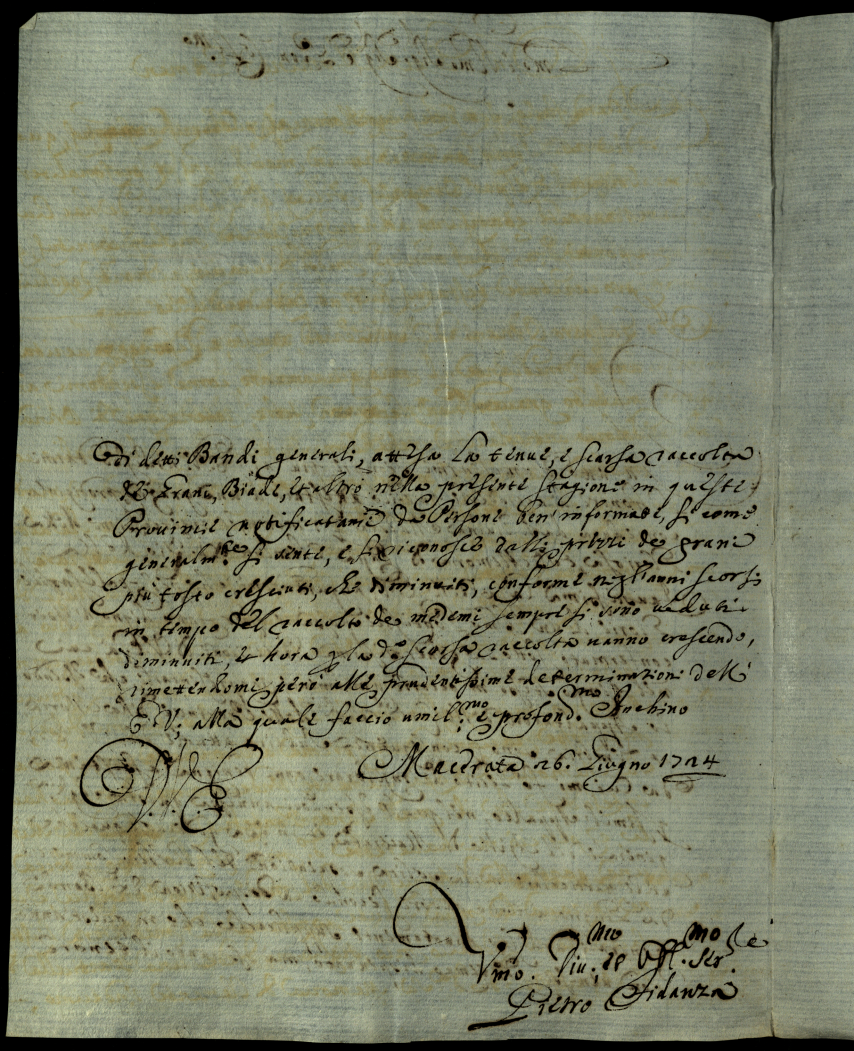 di detti Bandi generali, attesa la tenue, e scarsa raccolta
de Grani, Biade, et altro nella presente stagione in queste
Provincie notificatami da Persone ben informate, si come
generalm.te si sente, e si riconosce dalli prezzi de grani
più tosto cresciuti, che diminuiti, conforme negl'anni scorsi
in tempo del raccolto de medemi sempre si sono veduti
diminuiti, et hora p la d.a scarsa raccolta vanno crescendo,
rimettendomi però alle prudentissime determinazioni dell'
E.V., alla quale faccio umil.mo e profond.mo Inchino
Macerata 26. Giugno 1724
V.E.
Vmo. Div.mo et Obl.mo Ser.re
Pietro Fidanza